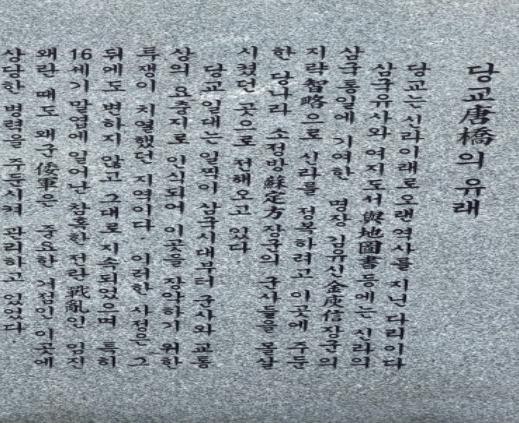 당교唐橋의 유래
당교는 신라이래로오랜역사를 지닌 다리이다
삼국유사와 여지도서輿地圖書등에는 신라의
삼국통일에 기여한 명장 김유신金庾信장군의
지략智略으로 신라를 정복하려고 이곳에 주둔
한 당나라 소정방蘇定方장군의 군사들을 몰살
시켰던 곳으로 전해오고 있다
당교일대는 일찍이 삼국시대부터 군사와 교통
상의 요충지로 인식되어 이곳을 장악하기 위한
투쟁이 치열했던 지역이다. 이러한 사정은 그
뒤에도 변하지 않고 그대로 지속되었으며 특히
16세기 말엽에 일어난 참혹한 전란戰亂인 임진
왜란 때도 왜군倭軍은 중요한 거점인 이곳에
상당한 병력을 주둔시켜 관리하고 있었다.